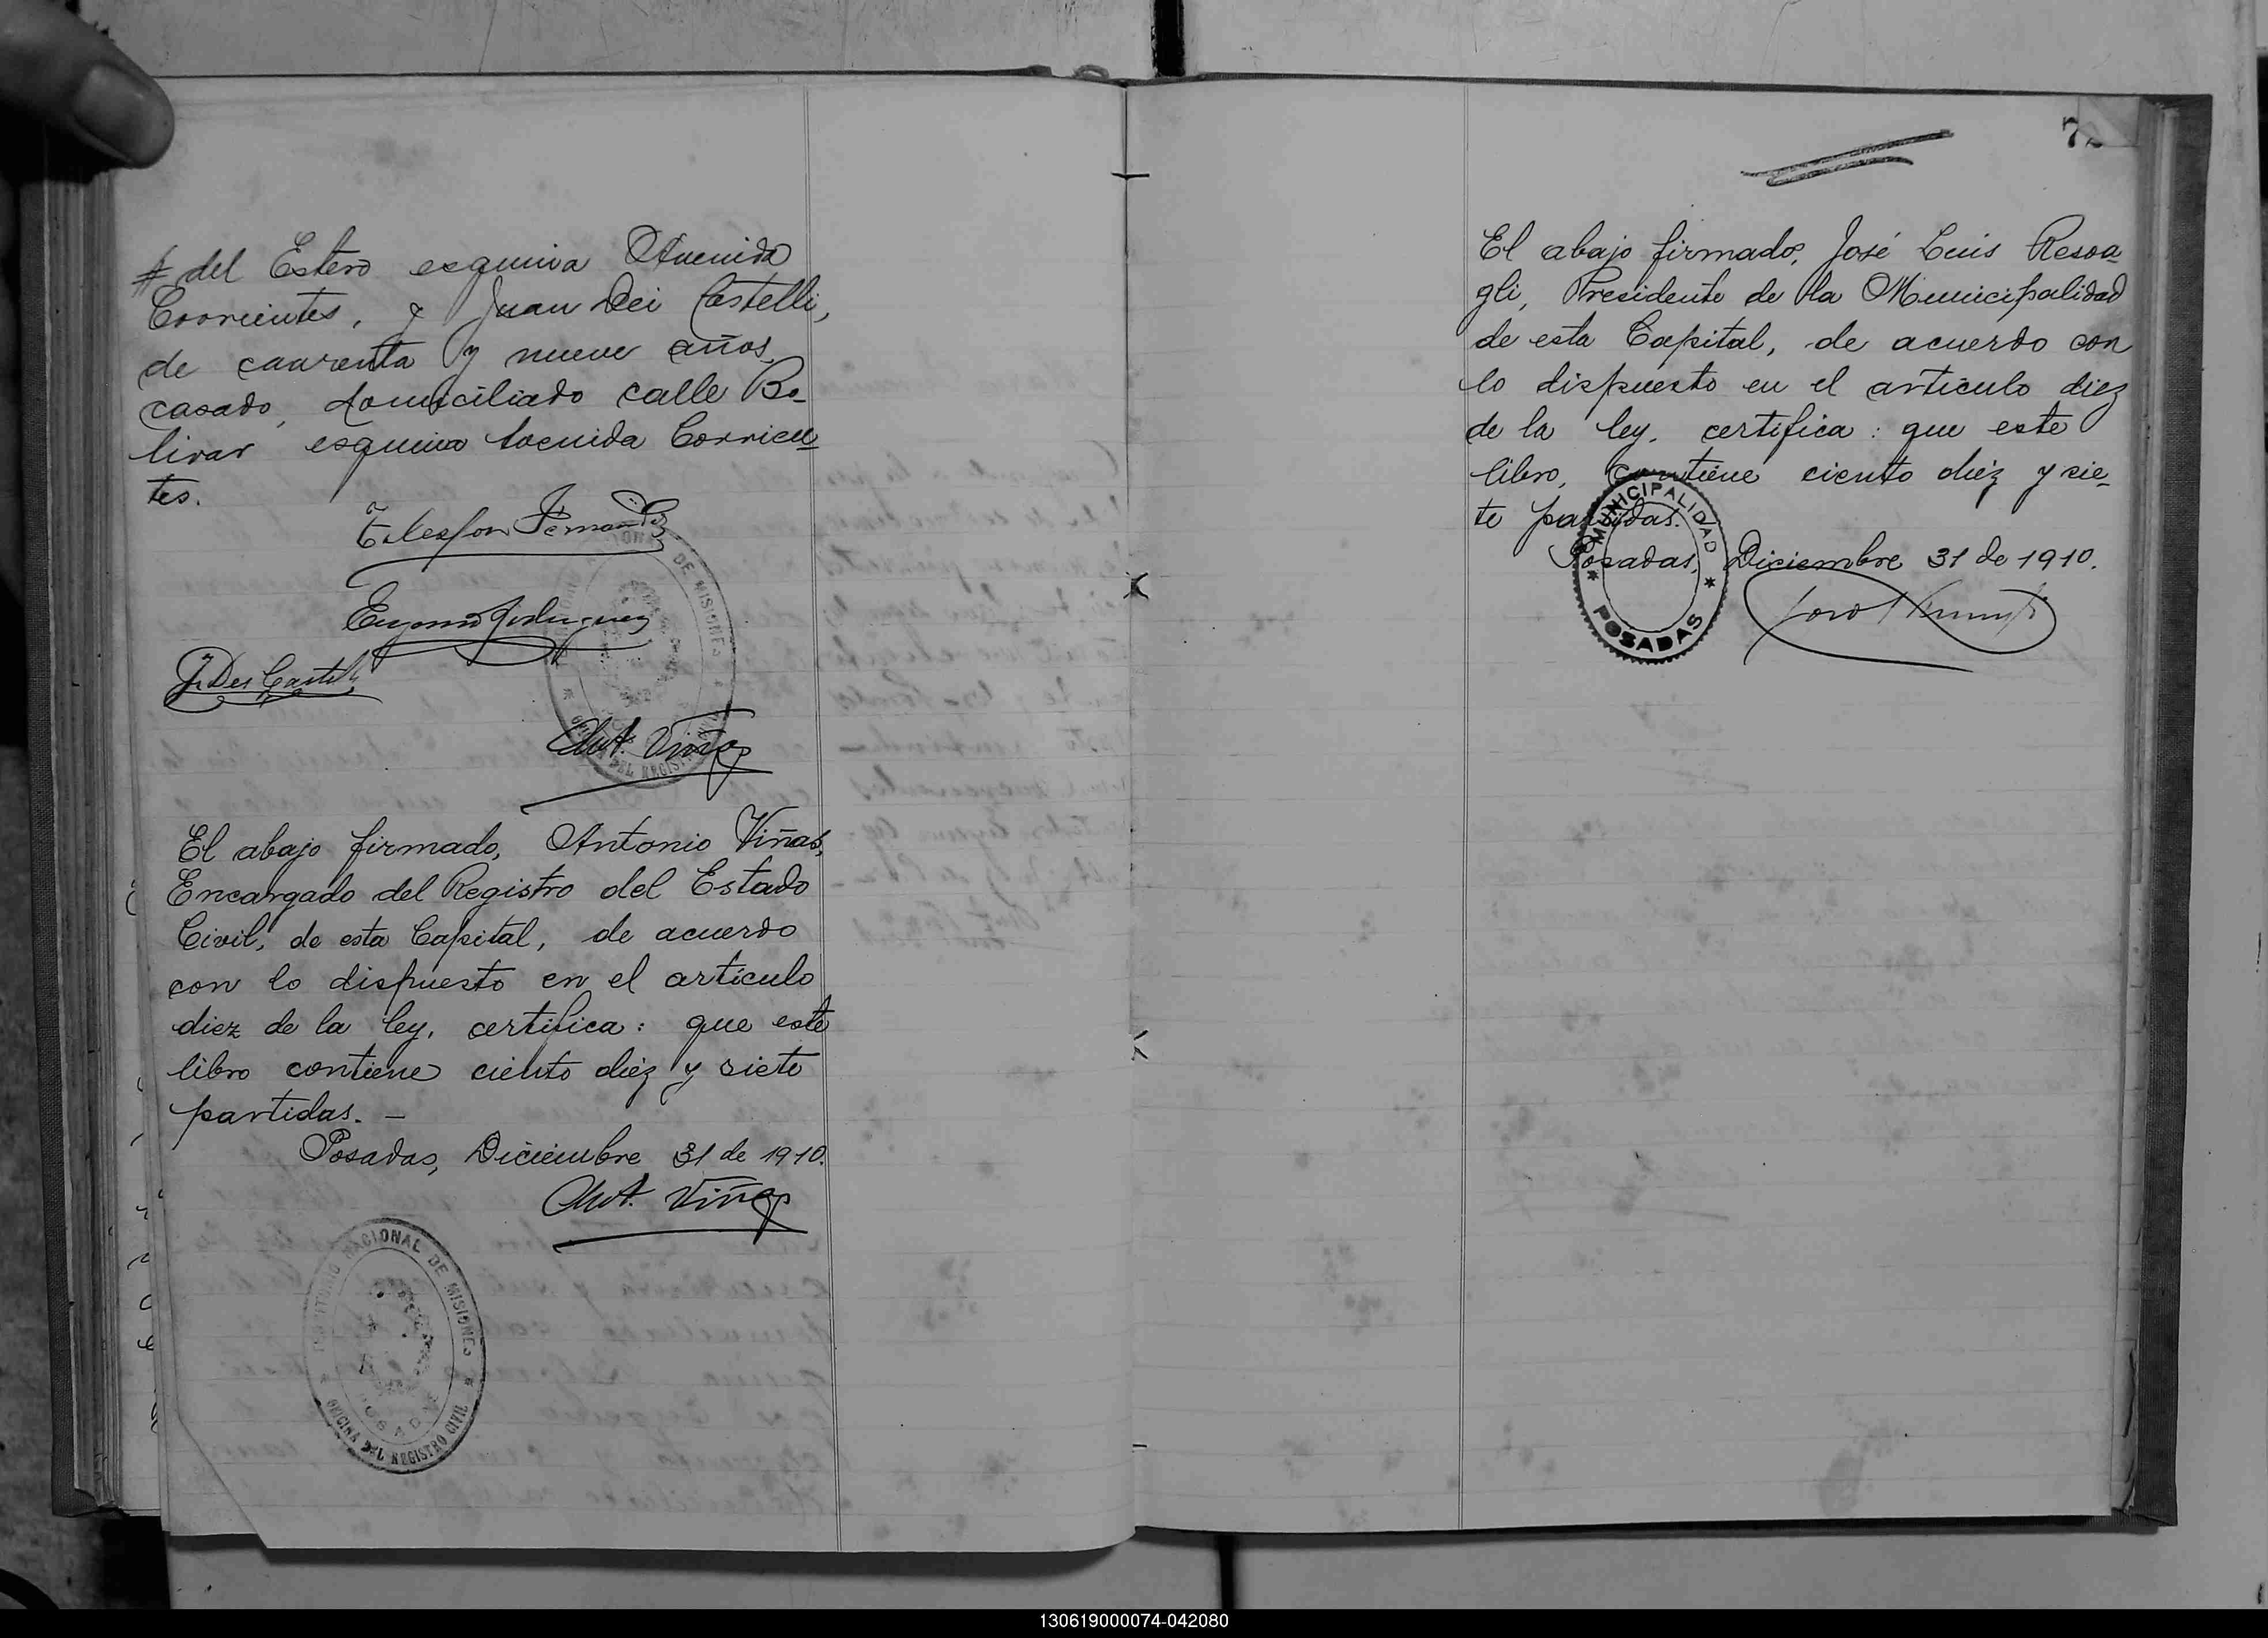 # del Estero esquina Avenida
Corrientes, y Juan Dei Castelli,
de cuarenta y nueve años,
casado, domiciliado calle Bo-
livar esquina Avenida Corrien-
tes.
Telesfor Fernandez
J. Dei Castelli
Ant. Viñas
El abajo firmado, Antonio Viñas,
Encargado del Registro del Estado
Civil, de esta Capital, de acuerdo
con lo dispuesto en el artículo
diez de la ley, certifica: que este
libro contiene ciento diez y siete
partidas. —
Posadas, Diciembre 31 de 1910.
Ant. Viñas
TERRITORIO NACIONAL DE MISIONES
OFICINA DEL REGISTRO CIVIL
POSADAS
El abajo firmado, José Luis Resoa-
gli, Presidente de la Municipalidad
de esta Capital, de acuerdo con
lo dispuesto en el artículo diez
de la ley, certifica: que este
libro, contiene ciento diez y sie-
te partidas.
Posadas, Diciembre 31 de 1910.
MUNICIPALIDAD
POSADAS
130619000074-042080